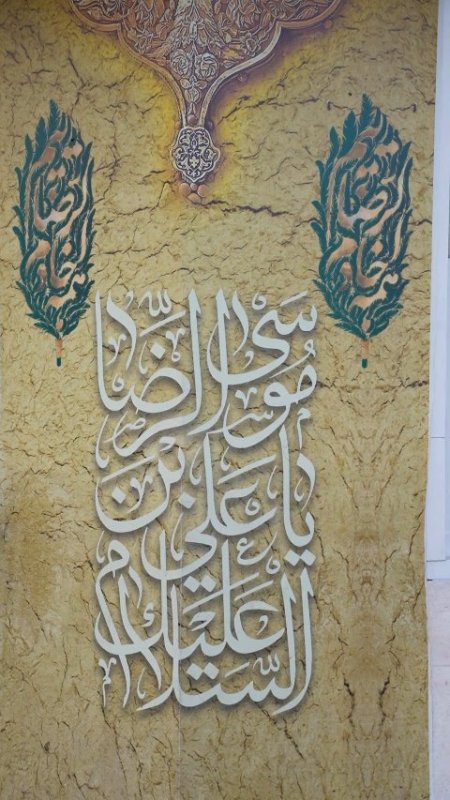 السَّلام عَلَيك
يا عَلي بن
مُوسَى الرِّضا